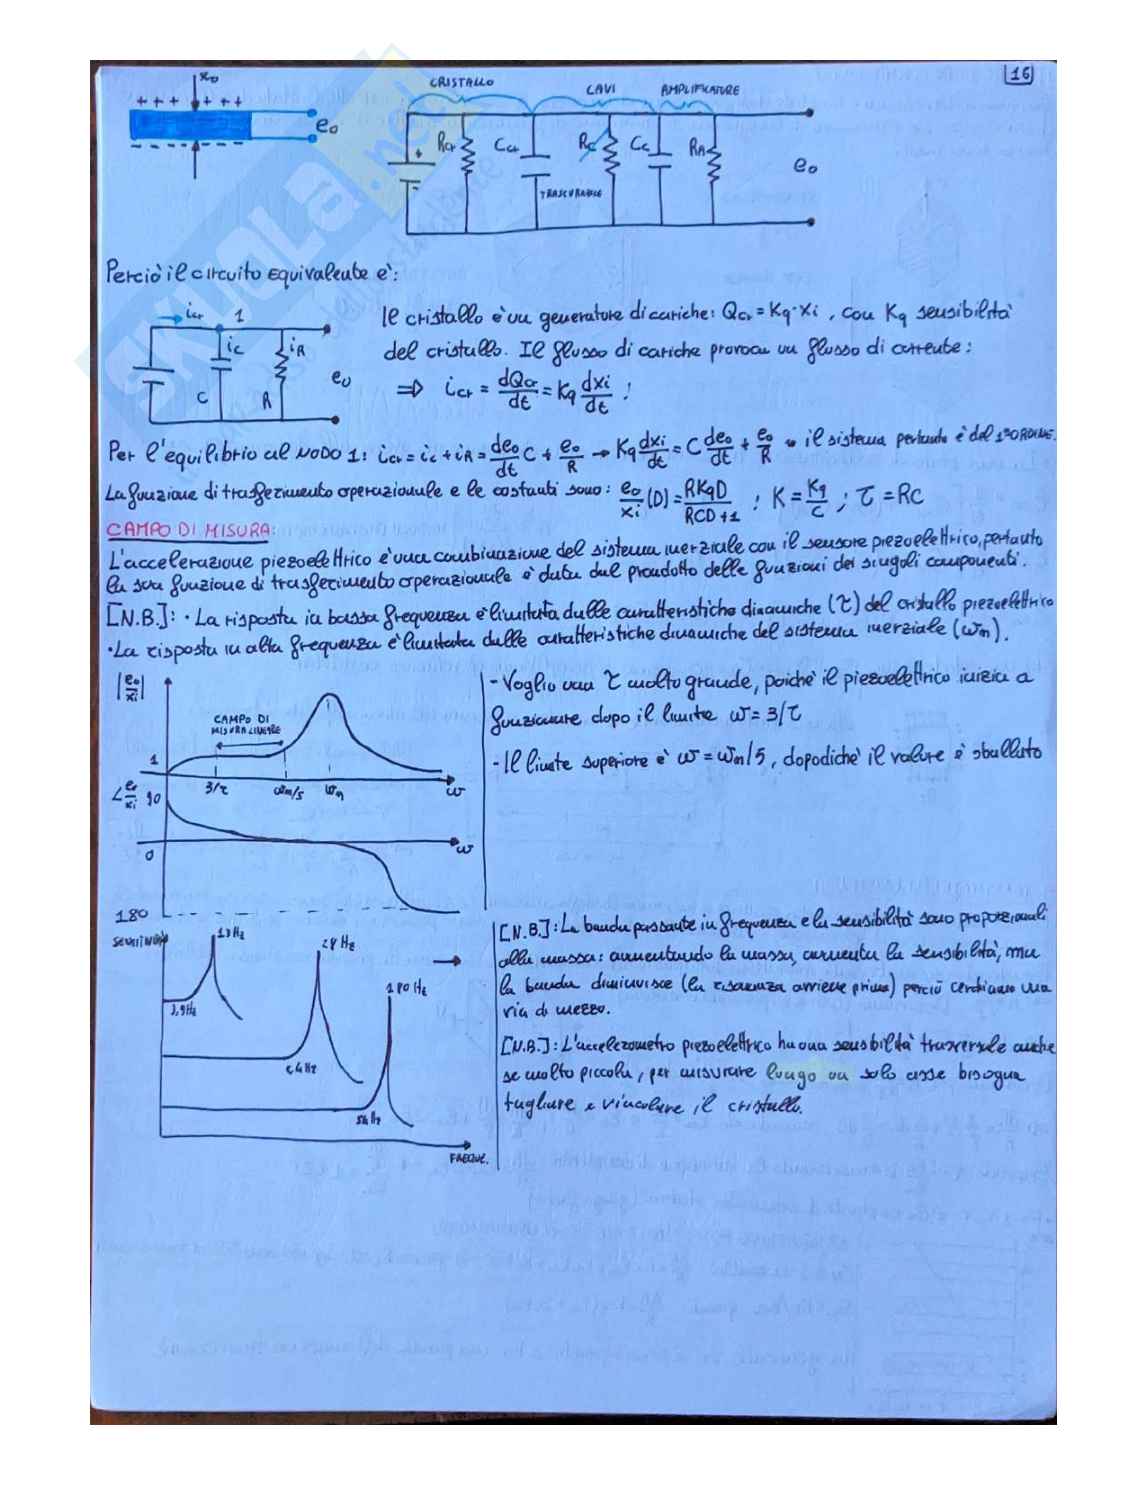 16
x₀
+ + + + + +
e₀
CRISTALLO
CAVI
AMPLIFICATORE
Rcr
Ccr
Rc
Cc
RA
e₀
TRASCURABILE
SKUOLA.net
Perciò il circuito equivalente è:
icr 1
iC
iR
e₀
C
R
Il cristallo è un generatore di cariche: Qcr = Kq·xi , con Kq sensibilità
del cristallo. Il flusso di cariche provoca un flusso di corrente:
⇒ icr = dQcr/dt = Kq dxi/dt !
Per l'equilibrio al NODO 1: icr = ic + iR = de₀/dt C + e₀/R → Kq dxi/dt = C de₀/dt + e₀/R → il sistema pertanto è del 1° ORDINE.
La funzione di trasferimento operazionale e le costanti sono: e₀/xi (D) = RKqD/RCD+1 ; K = Kq/C ; τ = RC
CAMPO DI MISURA:
L'accelerazione piezoelettrico è una combinazione del sistema inerziale con il sensore piezoelettrico, pertanto
la sua funzione di trasferimento operazionale è data dal prodotto delle funzioni dei singoli componenti.
[N.B.]: · La risposta in bassa frequenza è limitata dalle caratteristiche dinamiche (τ) del cristallo piezoelettrico
· La risposta in alta frequenza è limitata dalle caratteristiche dinamiche del sistema inerziale (ωn).
|e₀/xi|
CAMPO DI
MISURA LINEARE
1
3/τ
ωn/5
ωn
ω
∠ e₀/xi
90
0
ω
180
- Voglio una τ molto grande, poichè il piezoelettrico inizia a
funzionare dopo il limite ω = 3/τ
- Il limite superiore è ω = ωn/5, dopodichè il valore è sballato
28 Hz
180 Hz
3,9Hz
54 Hz
FREQUE.
[N.B.]: La banda passante in frequenza e la sensibilità sono proporzionali
alla massa: aumentando la massa, aumenta la sensibilità, ma
la banda diminuisce (la risonanza avviene prima) perciò cerchiamo una
via di mezzo.
[N.B.]: L'accelerometro piezoelettrico ha una sensibilità trasversale anche
se molto piccola, per misurare lungo un solo asse bisogna
tagliare e vincolare il cristallo.